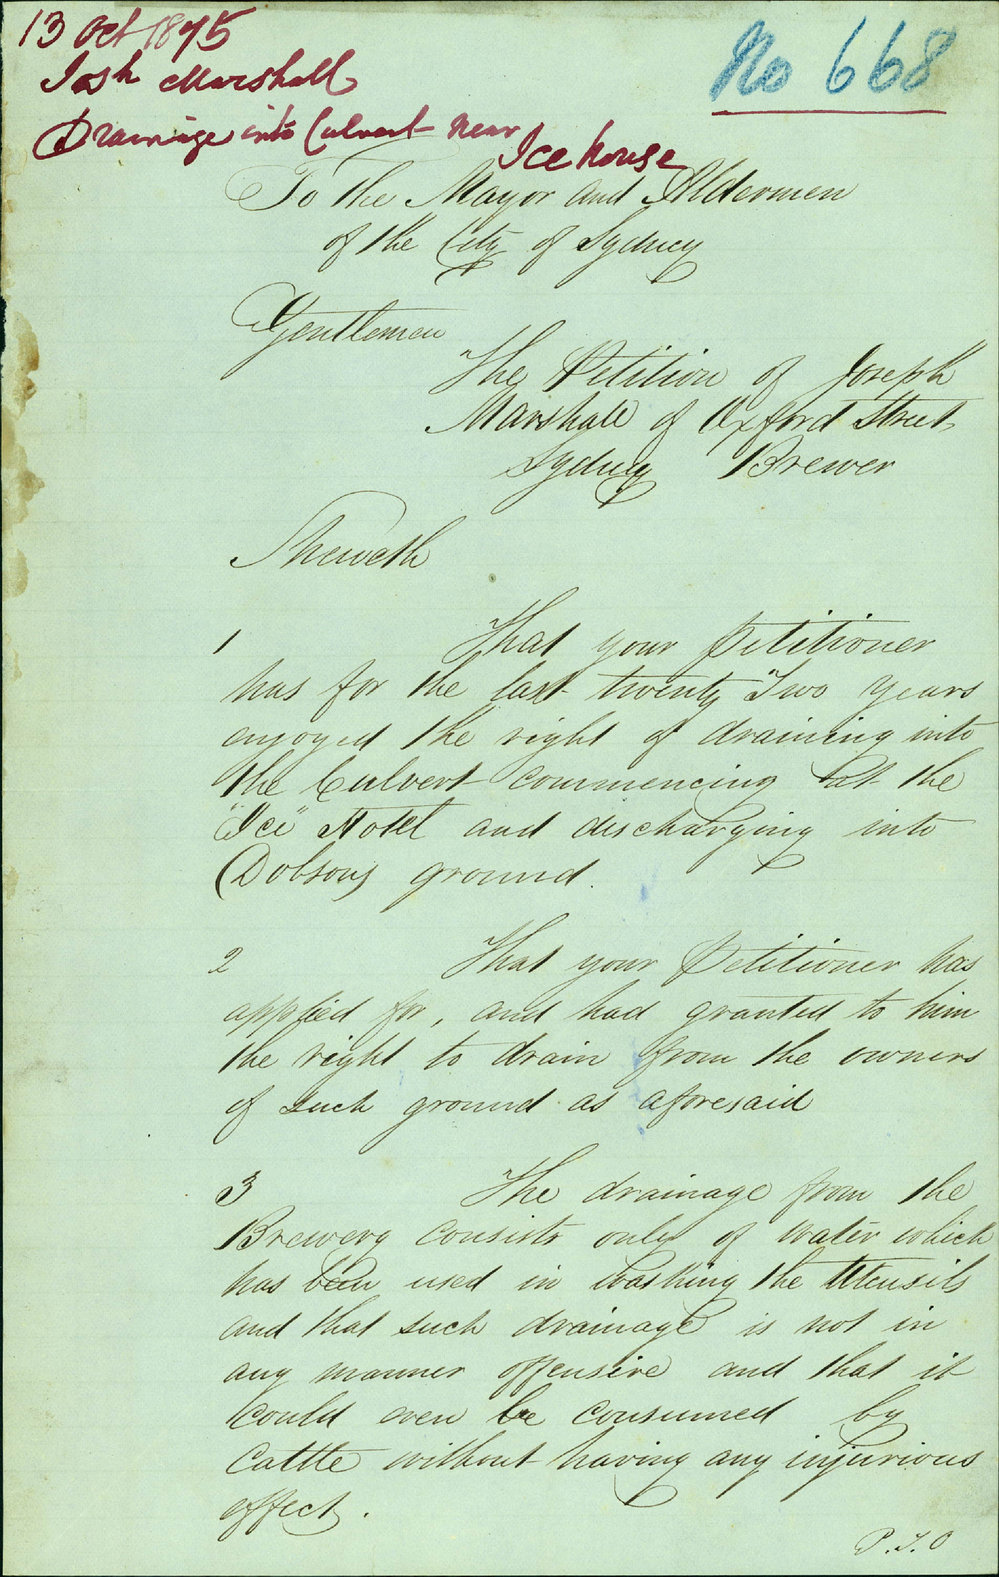 13 Oct 1875
No 668
Josh Marshall
Drainage into Culvert near
Ice house
To the Mayor and Aldermen
of the City of Sydney
Gentlemen
The Petition of Joseph
Marshall of Oxford Street
Sydney Brewer
Sheweth
1 That your Petitioner
has for the last twenty Two years
enjoyed the right of draining into
the Culvert commencing at the
"Ice" Hotel and discharging into
Dobsons ground.
2 That your Petitioner has
applied for, and had granted to him
the right to drain from the owners
of such ground as aforesaid
3 The drainage from the
Brewery consists only of water which
has been used in washing the Utensils
and that such drainage is not in
any manner offensive and that it
could even be consumed by
Cattle without having any injurious
effect.
P.T.O